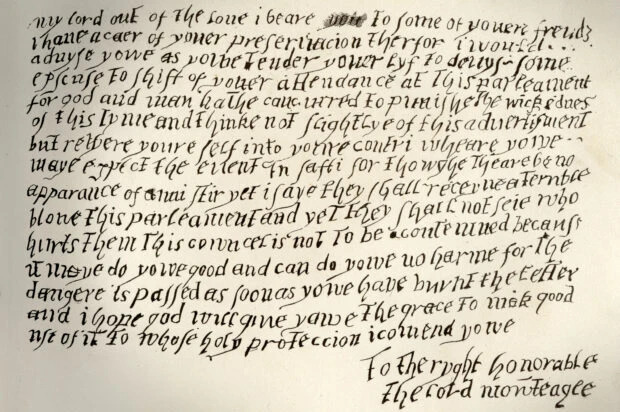 my lord out of the loue i beare you to some of youer frends
i haue a caer of youer preseruacion therfor i would
aduyse yowe as yowe tender youer lyf to deuys some
epscuse to shift of youer attendance at this parleament
for god and man hathe concurred to punishe the wickednes
of this tyme and thinke not slightlye of this aduertisment
but retyere youre self into youre contri wheare yowe
maye expect the euent in safti for thowghe theare be no
apparance of anni stir yet i saye they shall receyue a terrible
blowe this parleament and yet they shall not seie who
hurts them this cowncel is not to be contemned because
it maye do yowe good and can do yowe no harme for the
dangere is passed as soon as yowe have burnt the letter
and i hope god will giue yowe the grace to mak good
use of it to whose holy proteccion i comend yowe
To the ryght honorable
the lord mowteagle